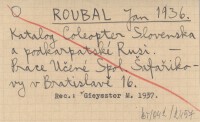 ROUBAL Jan 1936.
Katalog Coleopter Slovenska
a podkarpatské Rusi. —
Práce Učené Spol. Šafaříko-
vy v Bratislavě 16.
Rec.: Gieysztor M. 1937.